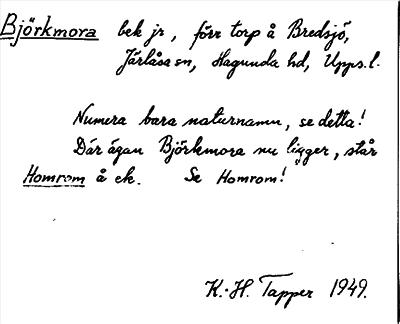 Björkmora bek jr, förr torp å Bredsjö,
Järlåsa sn, Hagunda hd, Upps. l.
Numera bara naturnamn, se detta!
Där ägan Björkmora nu ligger, står
Homrom å ek. Se Homrom!
K.-H. Tapper 1949.